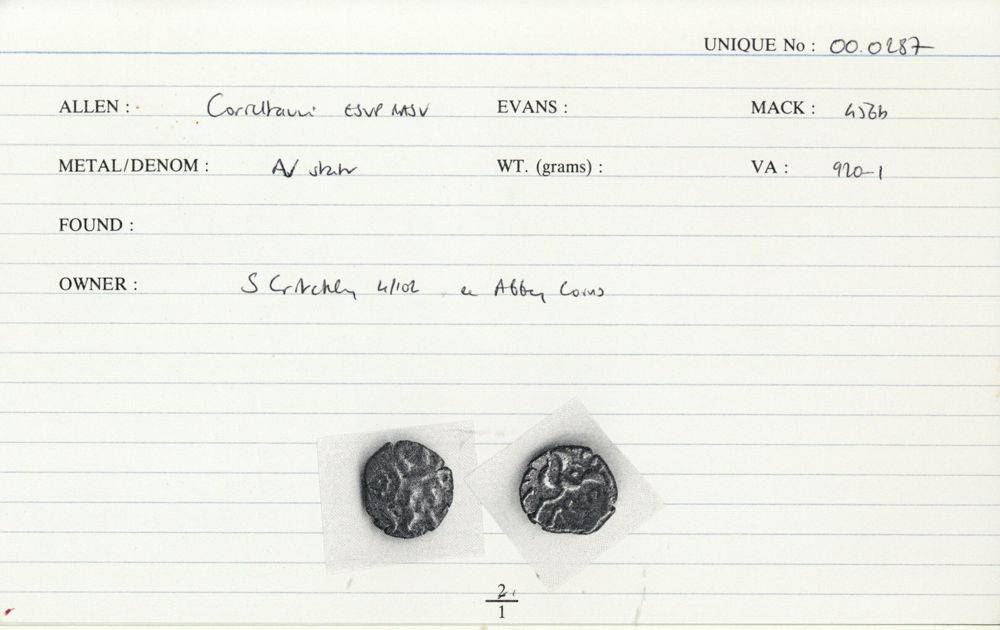 UNIQUE No : 00.0287
ALLEN : Corieltauvi ESVP RASV EVANS : MACK : 456b
METAL/DENOM : AV stater WT. (grams) : VA : 920-1
FOUND :
OWNER : S Critchley ex Abbey Coins
2
1